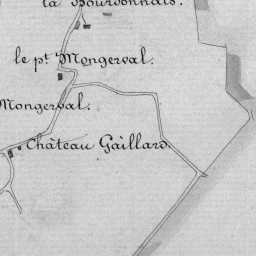 la Bourdonnais.
le pt. Mongerval.
Mongerval.
Château Gaillard